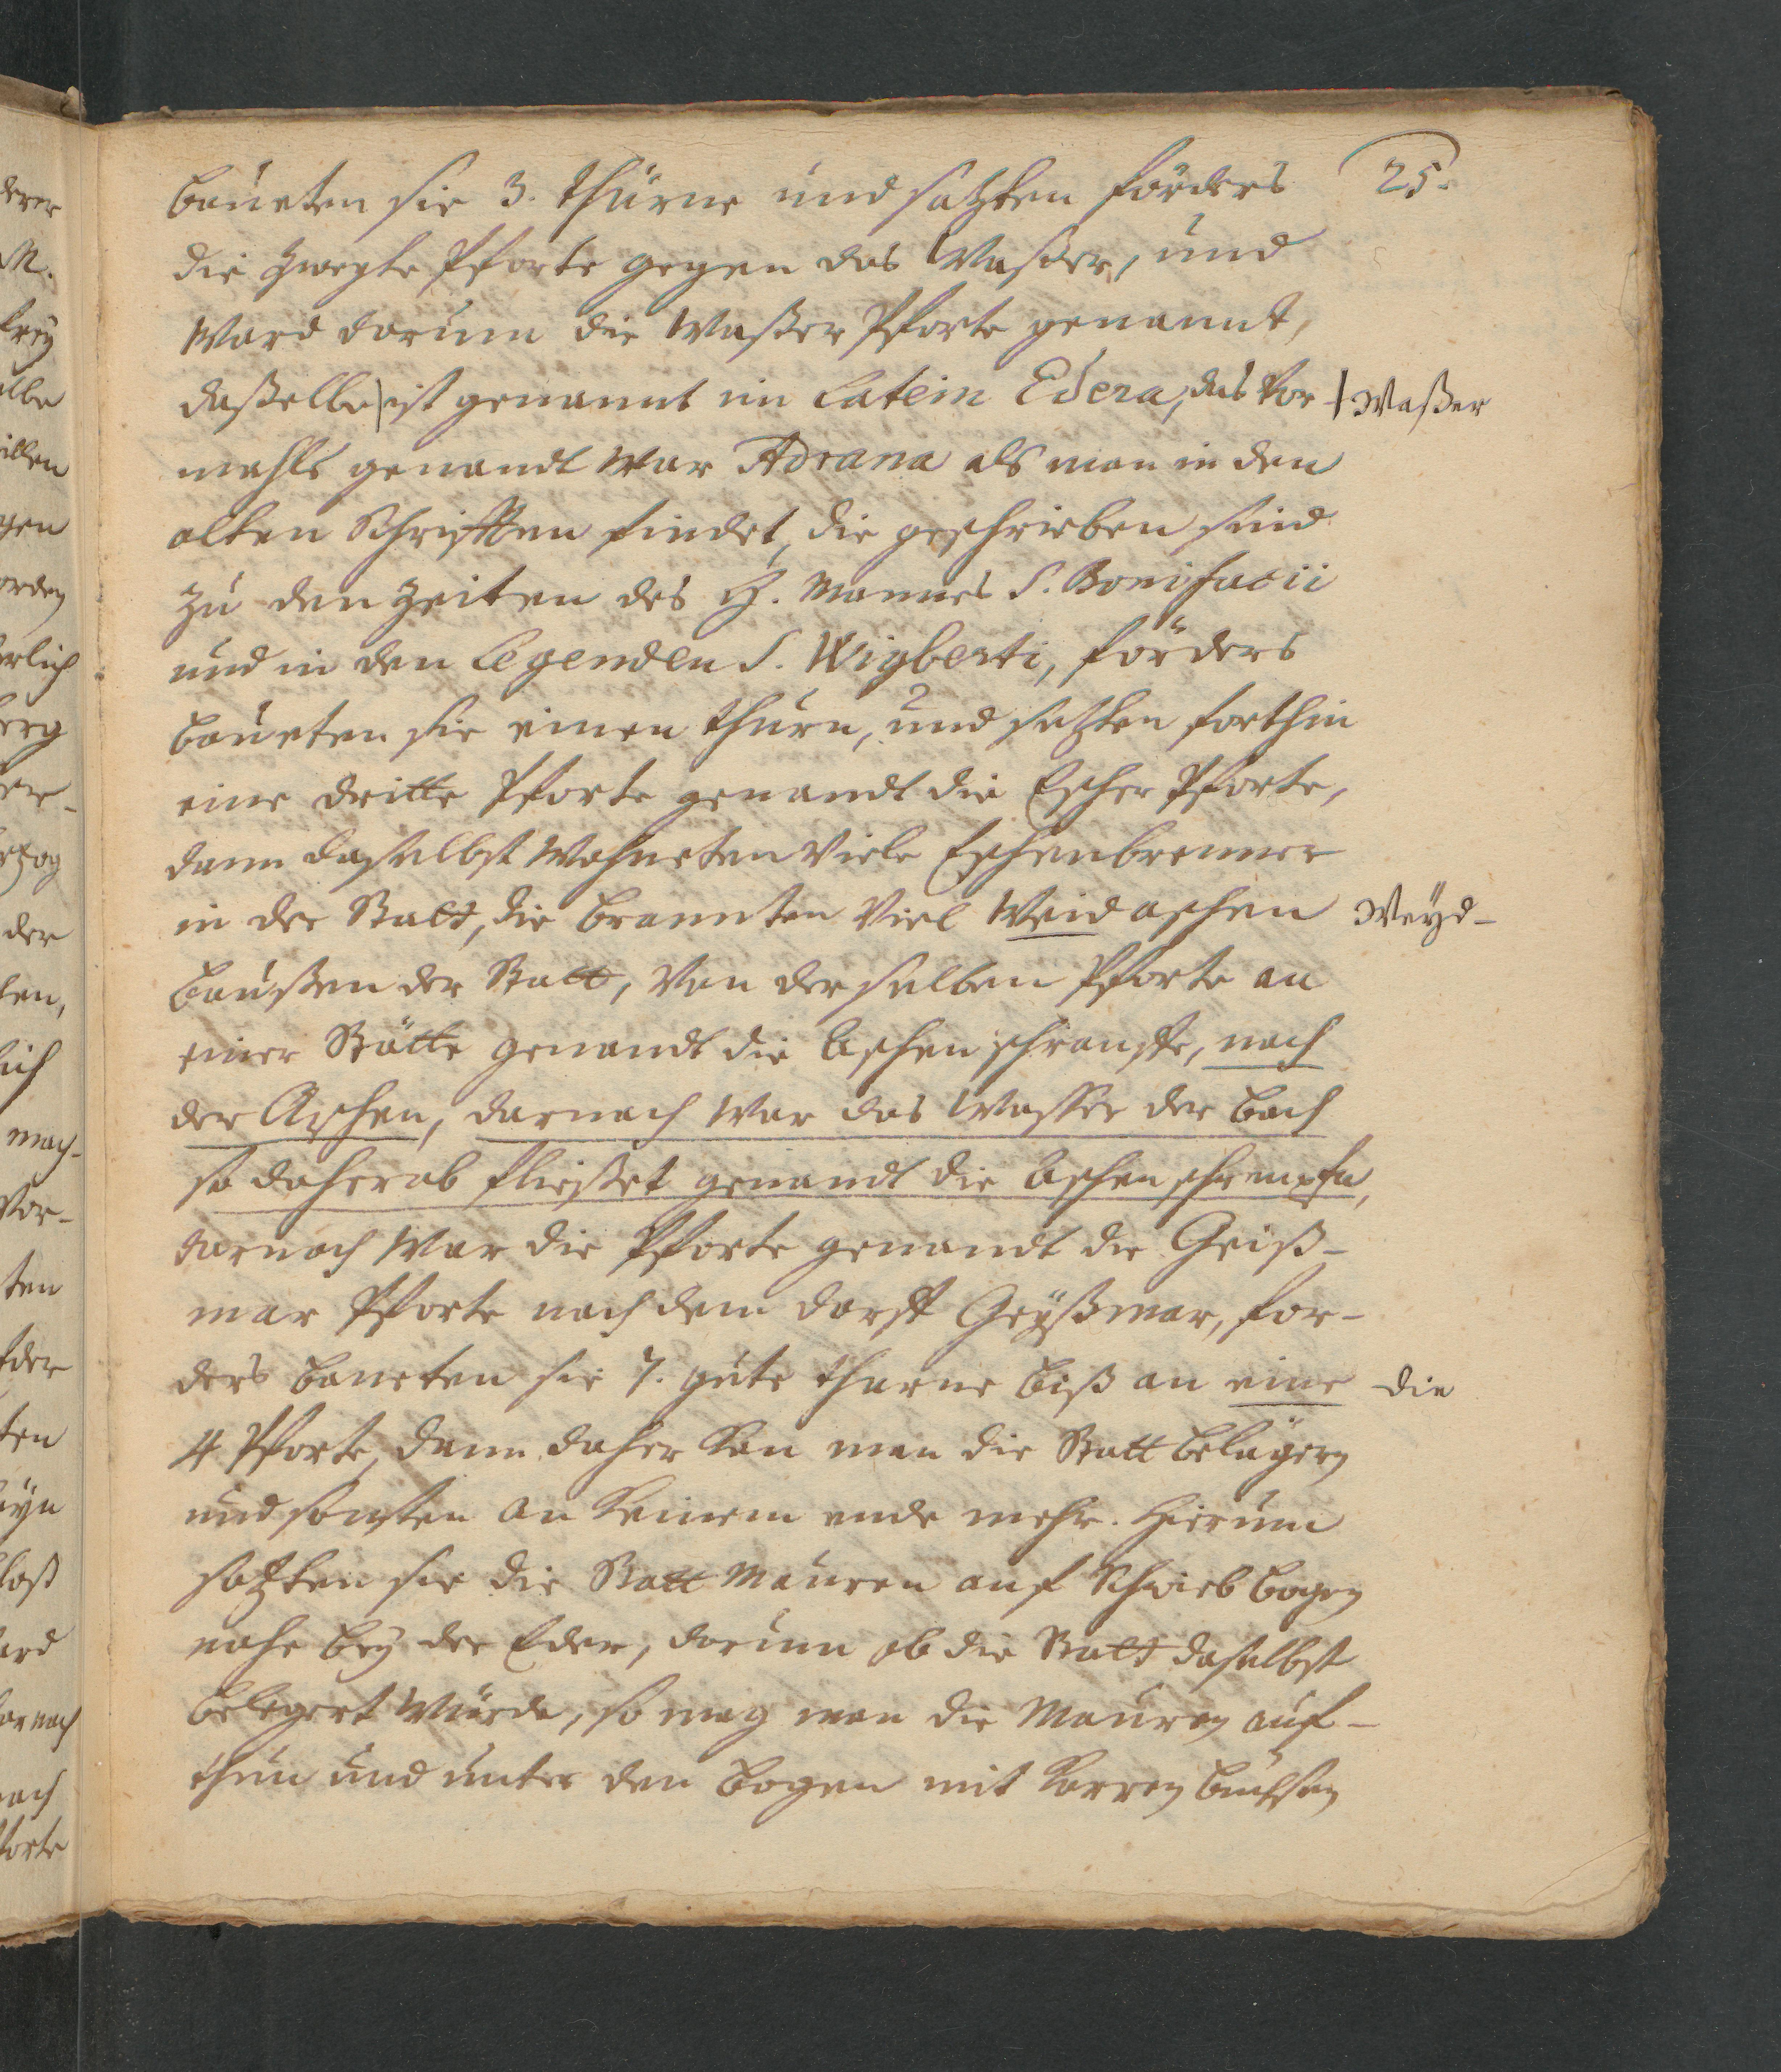 25.
baueten sie 3. thürne und satzten förders
die zweyte Pforte gegen das Waßer, und
Ward darum die Waßer Pforte genannt,
daßelbe| ist genannt im Latein Edera, das Vor- | Waßer
mahls genandt War Adrana als man in den
alten Schrifften findet, die geschrieben sind
zu den Zeiten des H. Mannes S. Bonifacii
und in den Legenden S. Wigberti, förders
baueten sie einen thurn, und setzten forthin
eine dritte Pforte genandt die Escher Pforte,
dann daselbst Wohneten Viele Eschenbrenner
in der Statt, die brannten Viel Weidaschen Weyd-
baußen der Statt, Von derselben Pforte an
einer Stätte genandt die Aschenschranfte, nach
der Aschen, darnach War das Wasser der bach
so daherab fließet genandt die Aschenschrempfe,
darnach War die Pforte genandt die Geiß-
mar Pforte nach dem dorff Geyßmar, for-
ders baueten sie 7. gute thurne biß an eine die
4 Pforte, dann daher kan man die Statt belägern
und sonsten an keinem ende mehr. Hierum
satzten sie die Statt Mauren auf Schwiebbogen
nahe bey der Eder, darum ob die Statt daselbst
belegert Würde, so mag man die Mauren auf-
thun und unter den bogen mit Karren büchsen